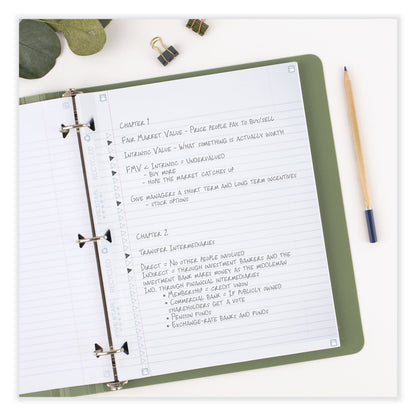 Chapter 1
Fair Market Value - Price people pay to buy/sell
Intrinsic Value - What something is actually worth
FMV < Intrinsic = Undervalued
- Buy more
- Hope the market catches up
Give managers a short term and long term incentives
- stock options
Chapter 2
Transfer Intermediaries
Direct = No other people involved
Indirect = through investment bankers and the
investment bank makes money as the middleman
Ind. through financial intermediaries
• Membership = credit union
• Commercial bank = if publicly owned
shareholders get a vote
• Pension funds
• Exchange-rate banks and funds